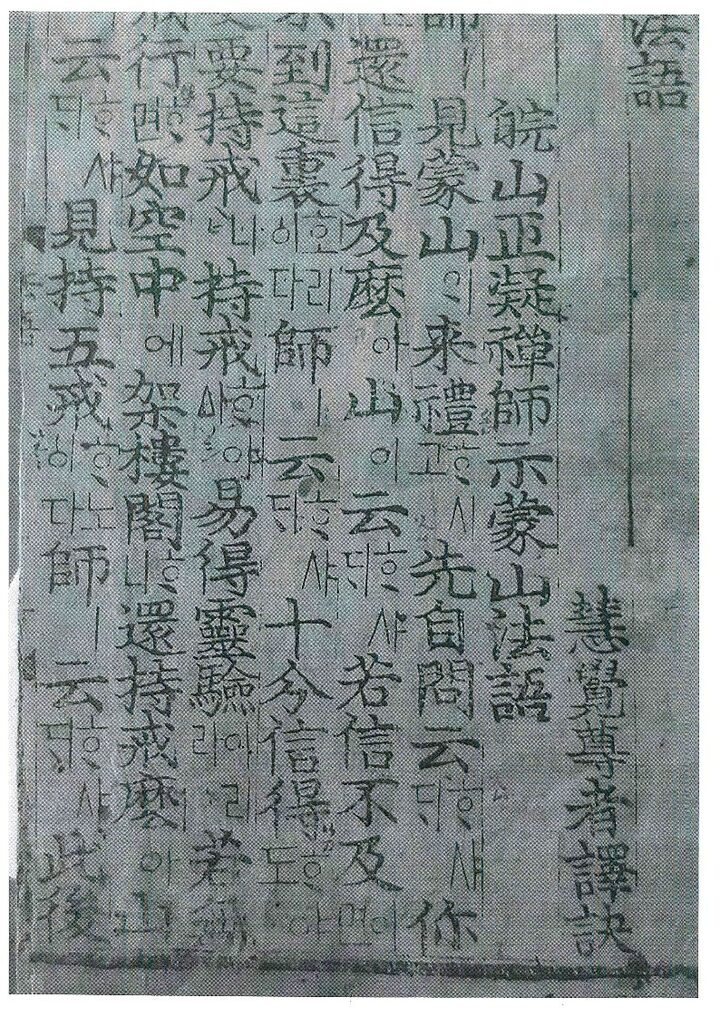 法語
慧覺尊者譯訣
皖山正凝禪師示蒙山法語
師ㅣ見蒙山의来禮ᄒᆞ시고先自問云ᄒᆞ샤ᄃᆡ你
還信得及麼아山이云ᄒᆞ샤ᄃᆡ若信不及이면
到這裏호리이다師ㅣ云ᄒᆞ샤ᄃᆡ十分信得ᄒᆞ야도
要持戒니持戒ᄒᆞ야ᅀᅡ易得靈驗이리라若無
戒行ᄒᆞ면如空中에架樓閣ᄒᆞ니還持戒麼아山
云ᄒᆞ샤ᄃᆡ見持五戒ᄒᆞ노이다師ㅣ云ᄒᆞ샤ᄃᆡ此後